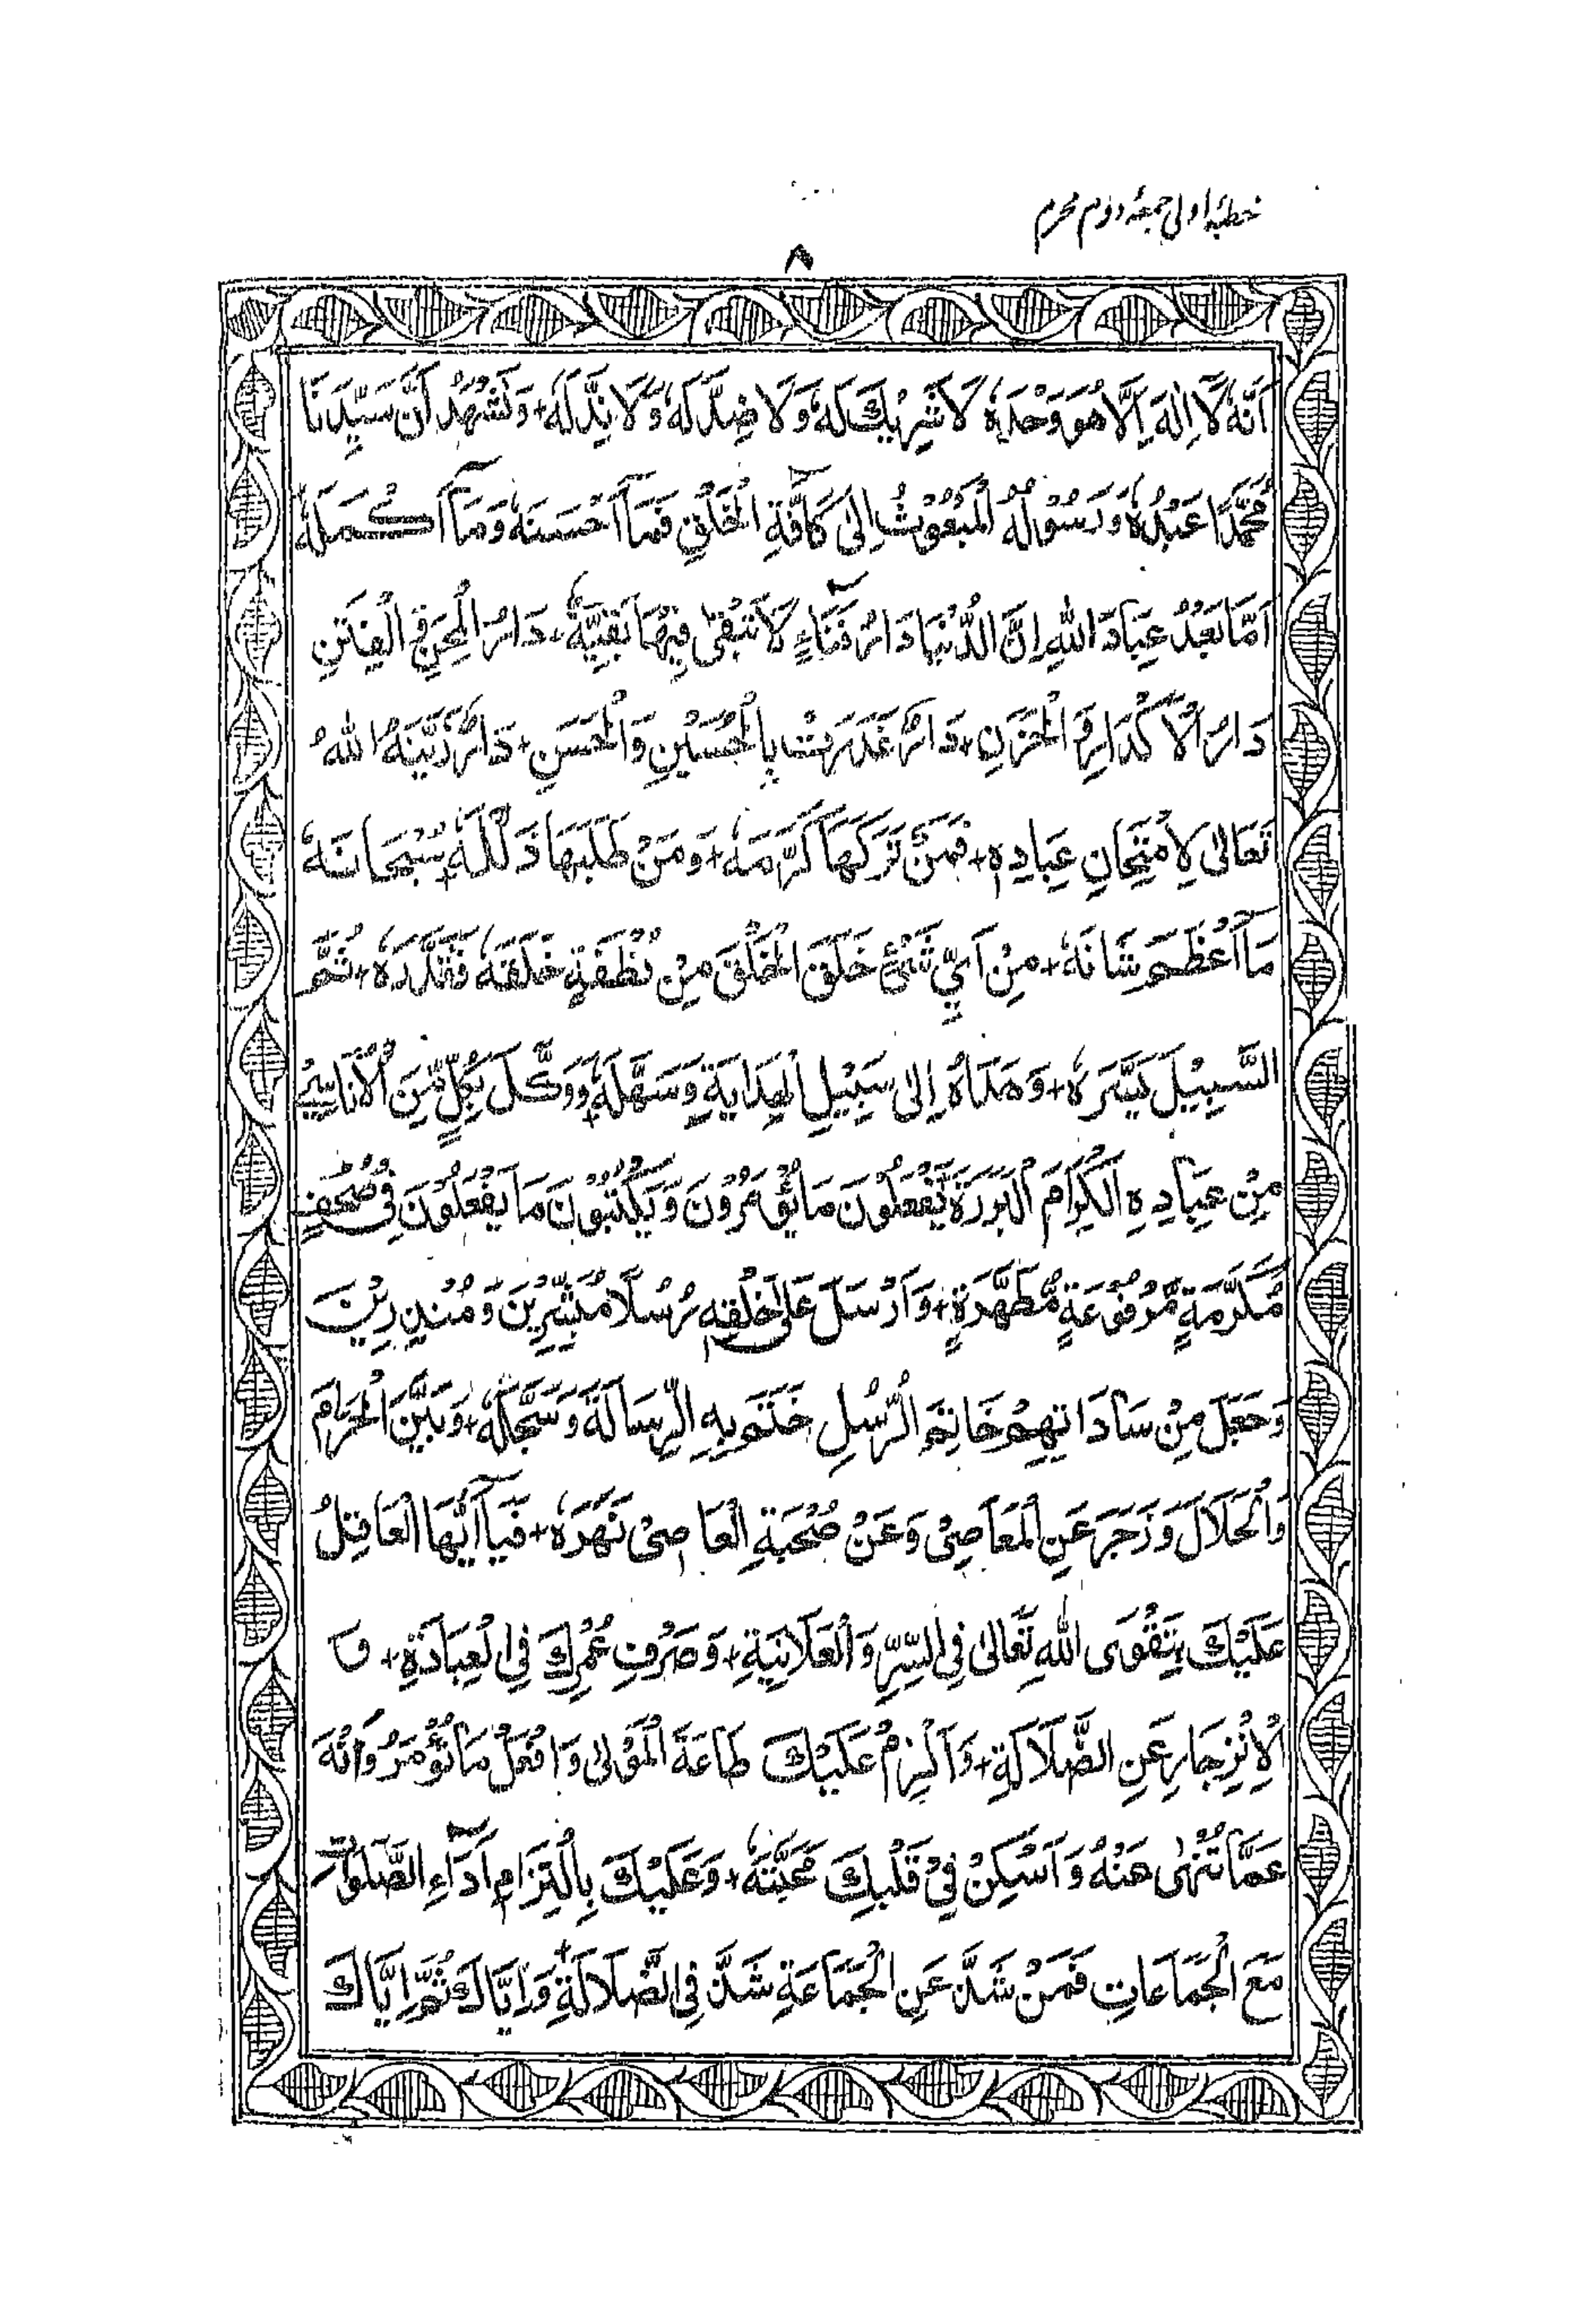 خطبۂ اولی جمعۂ دوم محرم
٨
اَنَّهٗ لَآ اِلٰهَ اِلَّا هُوَ وَحْدَهٗ لَا شَرِيْكَ لَهٗ وَلَا ضِدَّ لَهٗ وَلَا نِدَّ لَهٗ + وَنَشْهَدُ اَنَّ سَيِّدَنَا
مُحَمَّدًا عَبْدُهٗ وَرَسُوْلُهُ الْمَبْعُوْثُ اِلٰى كَآفَّةِ الْخَلْقِ فَمَآ اَحْسَنَهٗ وَمَآ اَكْمَلَهٗ
اَمَّا بَعْدُ عِبَادَ اللهِ اِنَّ الدُّنْيَا دَارُ فَنَآءٍ لَا تَبْقٰى فِيْهَا بَقِيَّةٌ + دَارُ الْمِحَنِ وَ الْفِتَنِ
دَارُ الْاَكْدَارِ وَ الْحَزَنِ + دَارٌ غَدَرَتْ بِالْحُسَيْنِ وَالْحَسَنِ + دَارٌ زَيَّنَهُ اللهُ
تَعَالٰى لِاِمْتِحَانِ عِبَادِهٖ + فَمَنْ تَرَكَهَا كَرَّمَهٗ + وَمَنْ طَلَبَهَا ذَلَّلَهٗ + سُبْحَانَهٗ
مَآ اَعْظَمَ شَانَهٗ + مِنْ اَيِّ شَيْءٍ خَلَقَ الْخَلْقَ مِنْ نُطْفَةٍ خَلَقَهٗ فَقَدَّرَهٗ + ثُمَّ
السَّبِيْلَ يَسَّرَهٗ + وَهَدَاهُ اِلٰى سَبِيْلِ الْهِدَايَةِ وَسَهَّلَهٗ + وَوَكَّلَ بِكُلٍّ مِّنَ الْاَنَاسِيِّ
مِنْ عِبَادِهِ الْكِرَامِ الْبَرَرَةِ يَفْعَلُوْنَ مَا يُؤْمَرُوْنَ وَيَكْتُبُوْنَ مَا يَفْعَلُوْنَ فِيْ صُحُفٍ
مُّكَرَّمَةٍ مَّرْفُوْعَةٍ مُّطَهَّرَةٍ + وَاَرْسَلَ عَلٰى خَلْقِهٖ رُسُلًا مُّبَشِّرِيْنَ وَمُنْذِرِيْنَ
وَجَعَلَ مِنْ سَادَاتِهِمْ خَاتِمَ الرُّسُلِ خَتَمَ بِهِ الرِّسَالَةَ وَسَجَّلَهٗ + وَبَيَّنَ الْحَرَامَ
وَالْحَلَالَ وَزَجَرَ عَنِ الْمَعَاصِىْ وَعَنْ صُحْبَةِ الْعَاصِىْ نَهَرَهٗ + فَيَآ اَيُّهَا الْعَاقِلُ
عَلَيْكَ بِتَقْوَى اللهِ تَعَالٰى فِى السِّرِّ وَالْعَلَانِيَةِ + وَصَرْفِ عُمْرِكَ فِى الْعِبَادَةِ + وَ
الْاِنْزِجَارِ عَنِ الضَّلَالَةِ + وَاَلْزِمْ عَلَيْكَ طَاعَةَ الْمَوْلٰى وَافْعَلْ مَا تُؤْمَرُ وَانْهَ
عَمَّا تُنْهٰى عَنْهُ وَاَسْكِنْ فِيْ قَلْبِكَ مَحَبَّتَهٗ + وَعَلَيْكَ بِالْتِزَامِ اَدَآءِ الصَّلَوَاتِ
مَعَ الْجَمَاعَاتِ فَمَنْ شَذَّ عَنِ الْجَمَاعَةِ شَذَّ فِى الضَّلَالَةِ + وَاِيَّاكَ ثُمَّ اِيَّاكَ